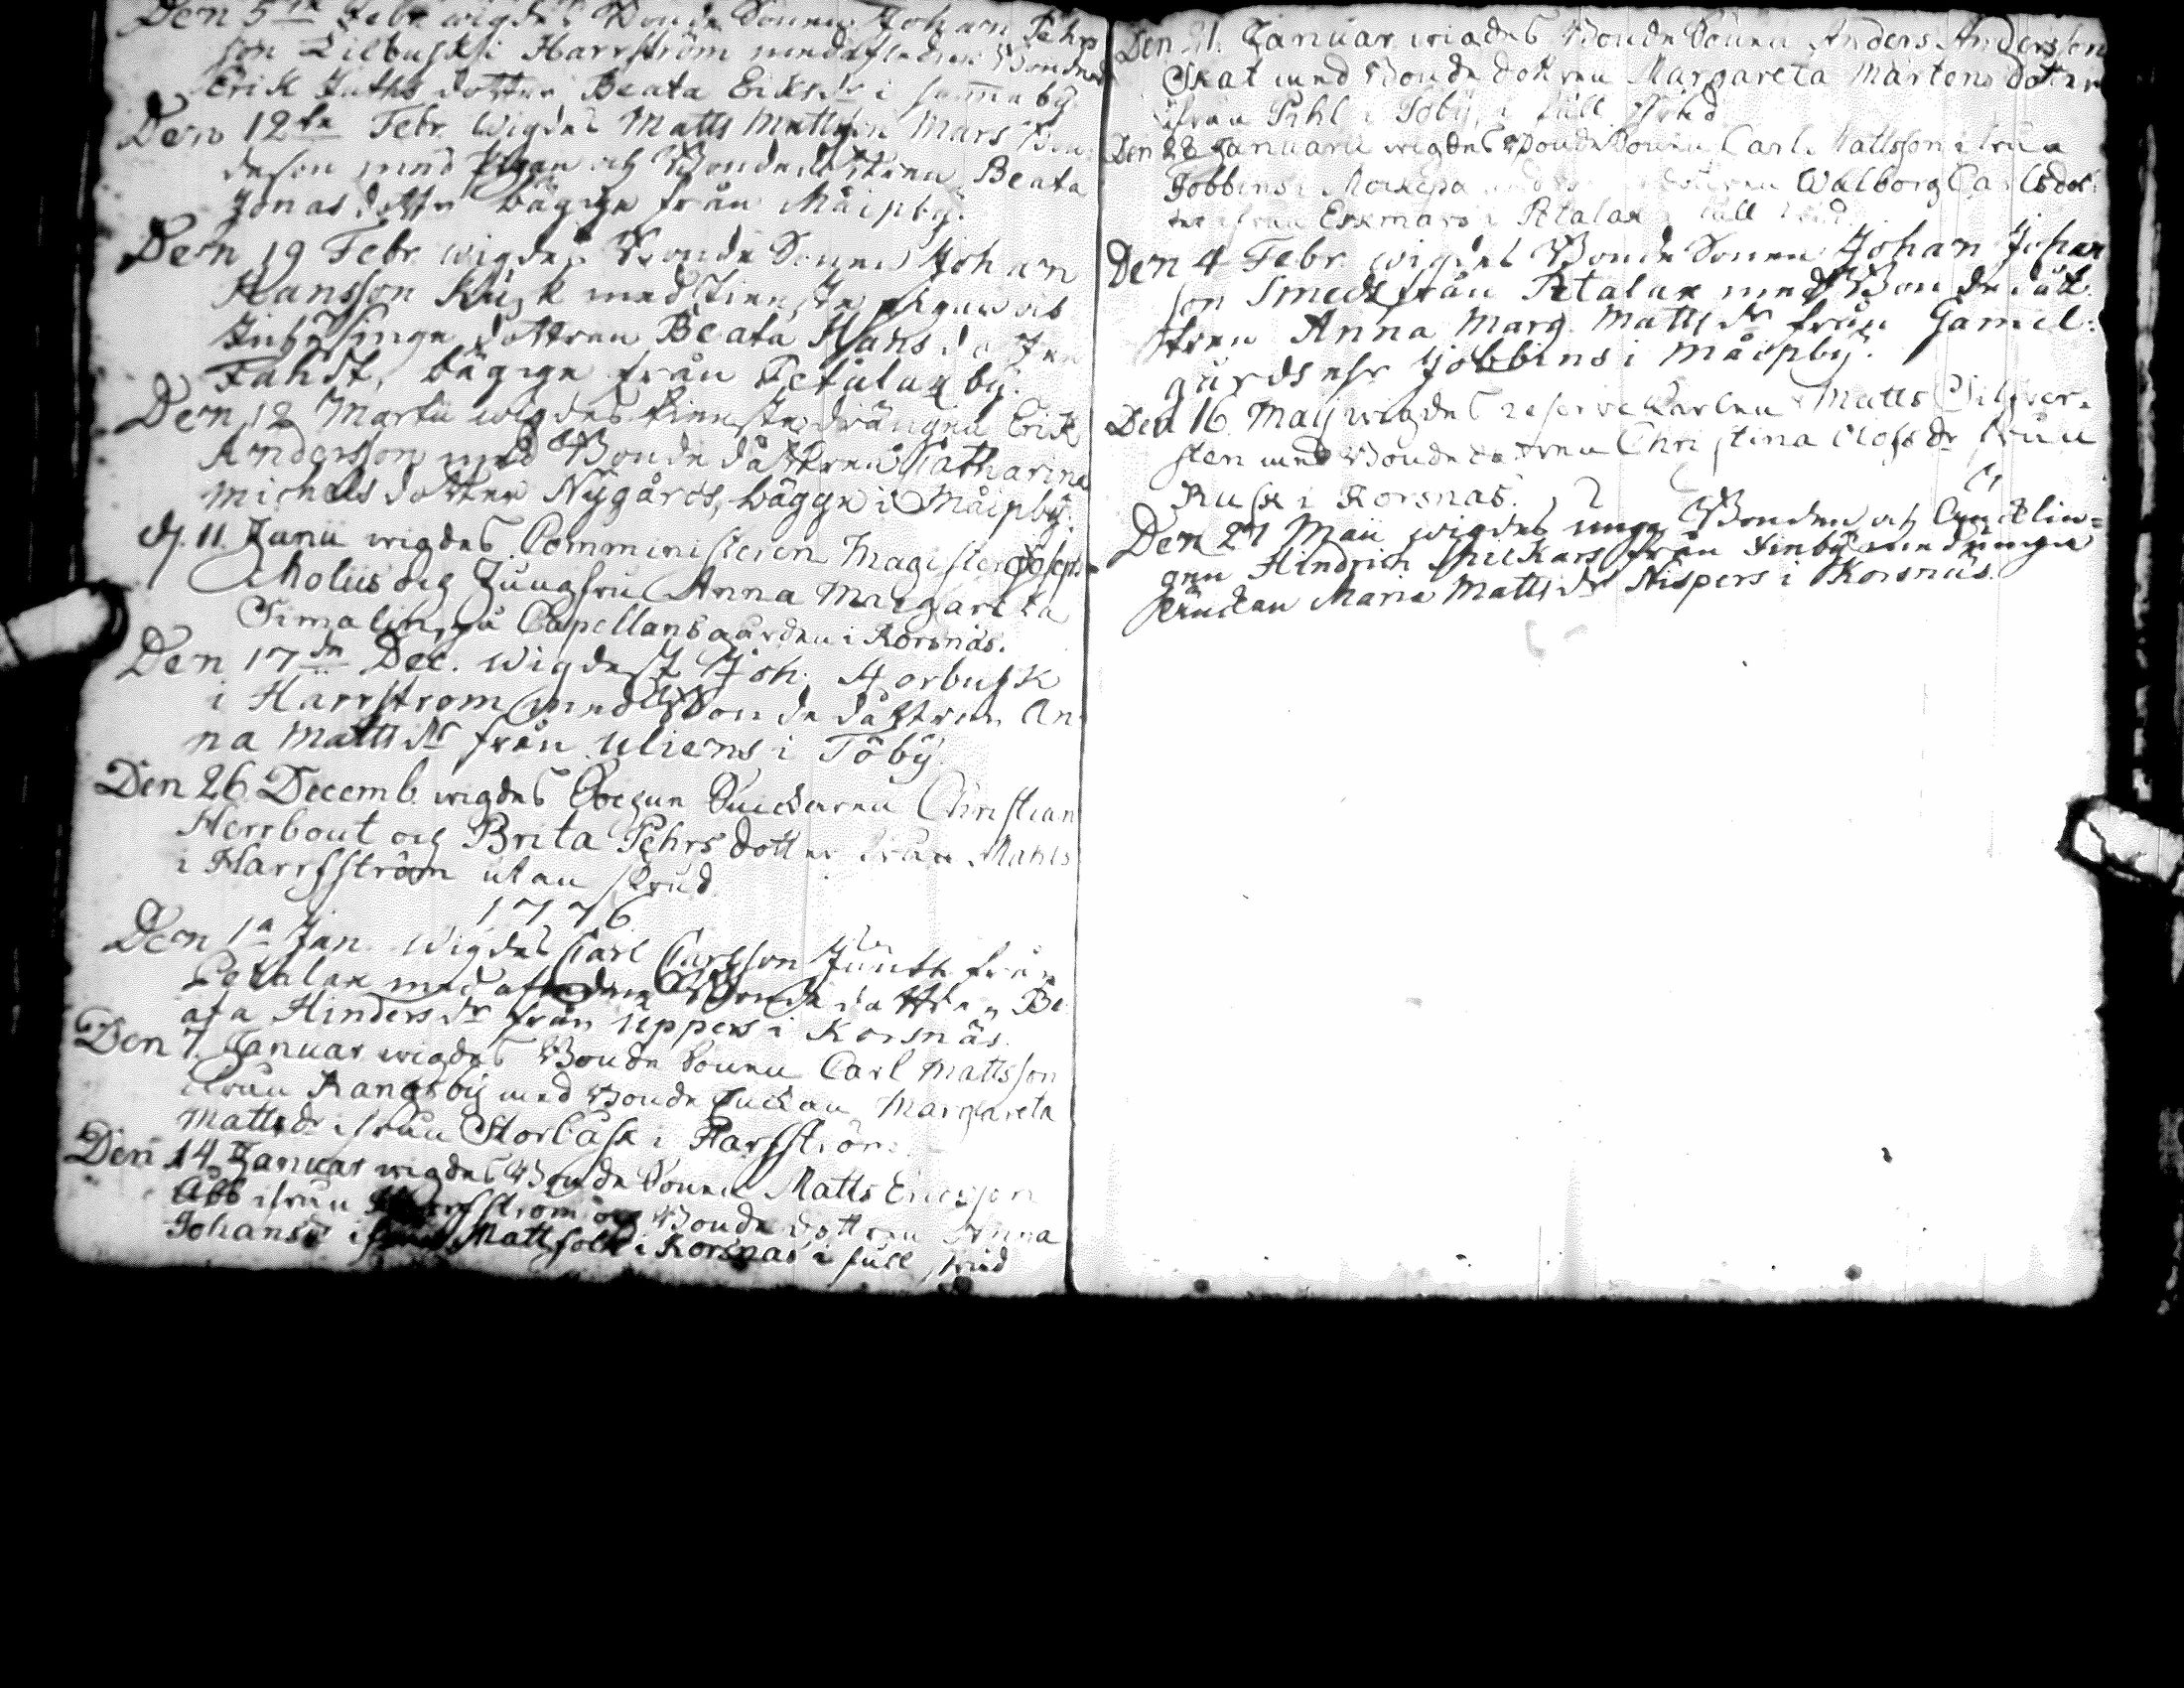 Den 5te Febr. wigdes Bonde Sonen Johan Pehrs
son Lilbusk i Harrström med afledne Bonden
Erik Juths dotter Beata Eriksdr i samma by
Den 12te Febr. Wigdes Matts Mattson Mars Bon-
deson med Pigan och Bondedottren Beata
Jonas dotter bägge från Måipby.
Den 19 Febr wigdes Bonde Sonen Johan
Hansson Kusk med tienste pigan och
Inhysinge dottren Beata Hans dotter
bägge från Petalax by.
Den 12 Martii wigdes tienste drängen Erik
Andersson med Bonde dottren Catharina
Michels dotter Nygårds, bägge i Måipby.
d. 11. Junii wigdes Comministeren Magister Joseph
och Jungfru Anna Margareta
Simalin, på Capellansgården i Korsnäs.
Den 17de Dec. wigdes Joh. Storbusk
i Harrstrom med Bonde dottren An-
na Matts dr från Uliens i Töby.
Den 26 Decemb. wigdes Christian
Herrbout och Brita Pehrs dotter från Mahls
i Harrsström utan skrud
1776
Den 1a Jan. Wigdes Carl Carlsson Juuth från
Petalax med afledne Bonde dottren Be
ata Hindersdr från Uppers i Korsnäs.
Den 7. Januar wigdes Bonde Sonen Carl Mattsson
ifrån Rangsby med Bonde Enckan Margareta
Mattsdr ifrån Storbusk i Harsström
Den 14 Januar wigdes Bonde Sonen Matts Ericsson
Abb ifrån Harrsstrom och Bonde dottren Anna
Johansdr ifrån Mattfolk i Korsnäs i full skrud
Den 21. Januar wigdes Bonde Sonen Anders Andersson
Skat med Bonde dottren Margareta Mårtens dotter
ifrån Pihl i Töby, i full skrud
Den 28 Januarii wigdes Bonde Sonen Carl Mattsson ifrån
Jobbens i med dottren Walborg Carlsdot-
ter ifrån Erkmars i Petalax i full skrud
Den 4 Febr. wigdes Bonde Sonen Johan Johan
son Smeds från Petalax med Bonde dåt-
tren Anna Marg. Mattsdr från Gamel-
gårds eller Jobbins i Måipby.
Den 16. Maij wigdes reserve Karlen Matts Silfver-
sten med Bonde dottren Christina Olofsdr ifrån
Rusk i Korsnäs.
Den 27 Maii wigdes unge Bonden och
Hindrich från Tinby med unga
Enckan Maria Mattsdr Nispers i Korsnäs.